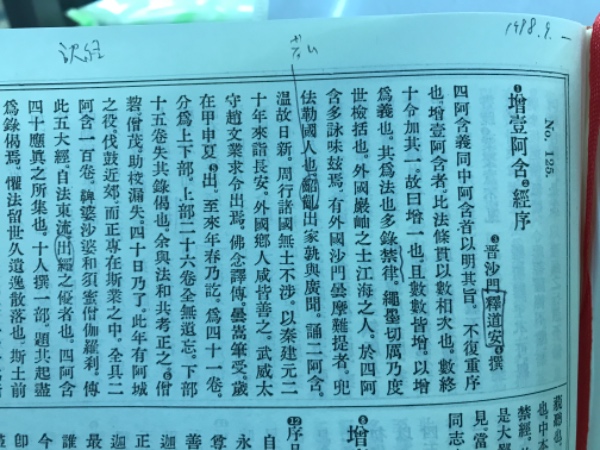 1998.9.一
No. 125.
增壹阿含經序
晉沙門釋道安撰
四阿含義同中阿含首以明其旨。不復重序
也。增壹阿含者。比法條貫以數相次也。數終
十令加其一。故曰增一也。且數數皆增。以增
爲義也。其爲法也多錄禁律。繩墨切厲乃度
世檢括也。外國巖岫之士江海之人。於四阿
含多詠味玆焉。有外國沙門曇摩難提者。兜
佉勒國人也。齠齔出家孰與廣聞。誦二阿含。
温故日新。周行諸國無土不涉。以秦建元二
十年來詣長安。外國鄉人咸皆善之。武威太
守趙文業求令出焉。佛念譯傳。曇嵩筆受。歲
在甲申夏出。至來年春乃訖。爲四十一卷。
分爲上下部。上部二十六卷全無遺忘。下部
十五卷失其錄偈也。余與法和共考正之。僧
碧僧茂。助校漏失。四十日乃了。此年有阿城
之役。伐鼓近郊。而正專在斯業之中。全具二
阿含一百卷。鞞婆沙婆和須蜜僧伽羅刹。傳
此五大經。自法東流出經之優者也。四阿含
四十應眞之所集也。十人撰一部。題其起盡
爲錄偈焉。懼法留世久遺逸散落也。斯土前
也。中本
禁經。
是大
見。當
同志
增
序品
自
永
尊
善
迦
正
迦
最
誰
今
卽